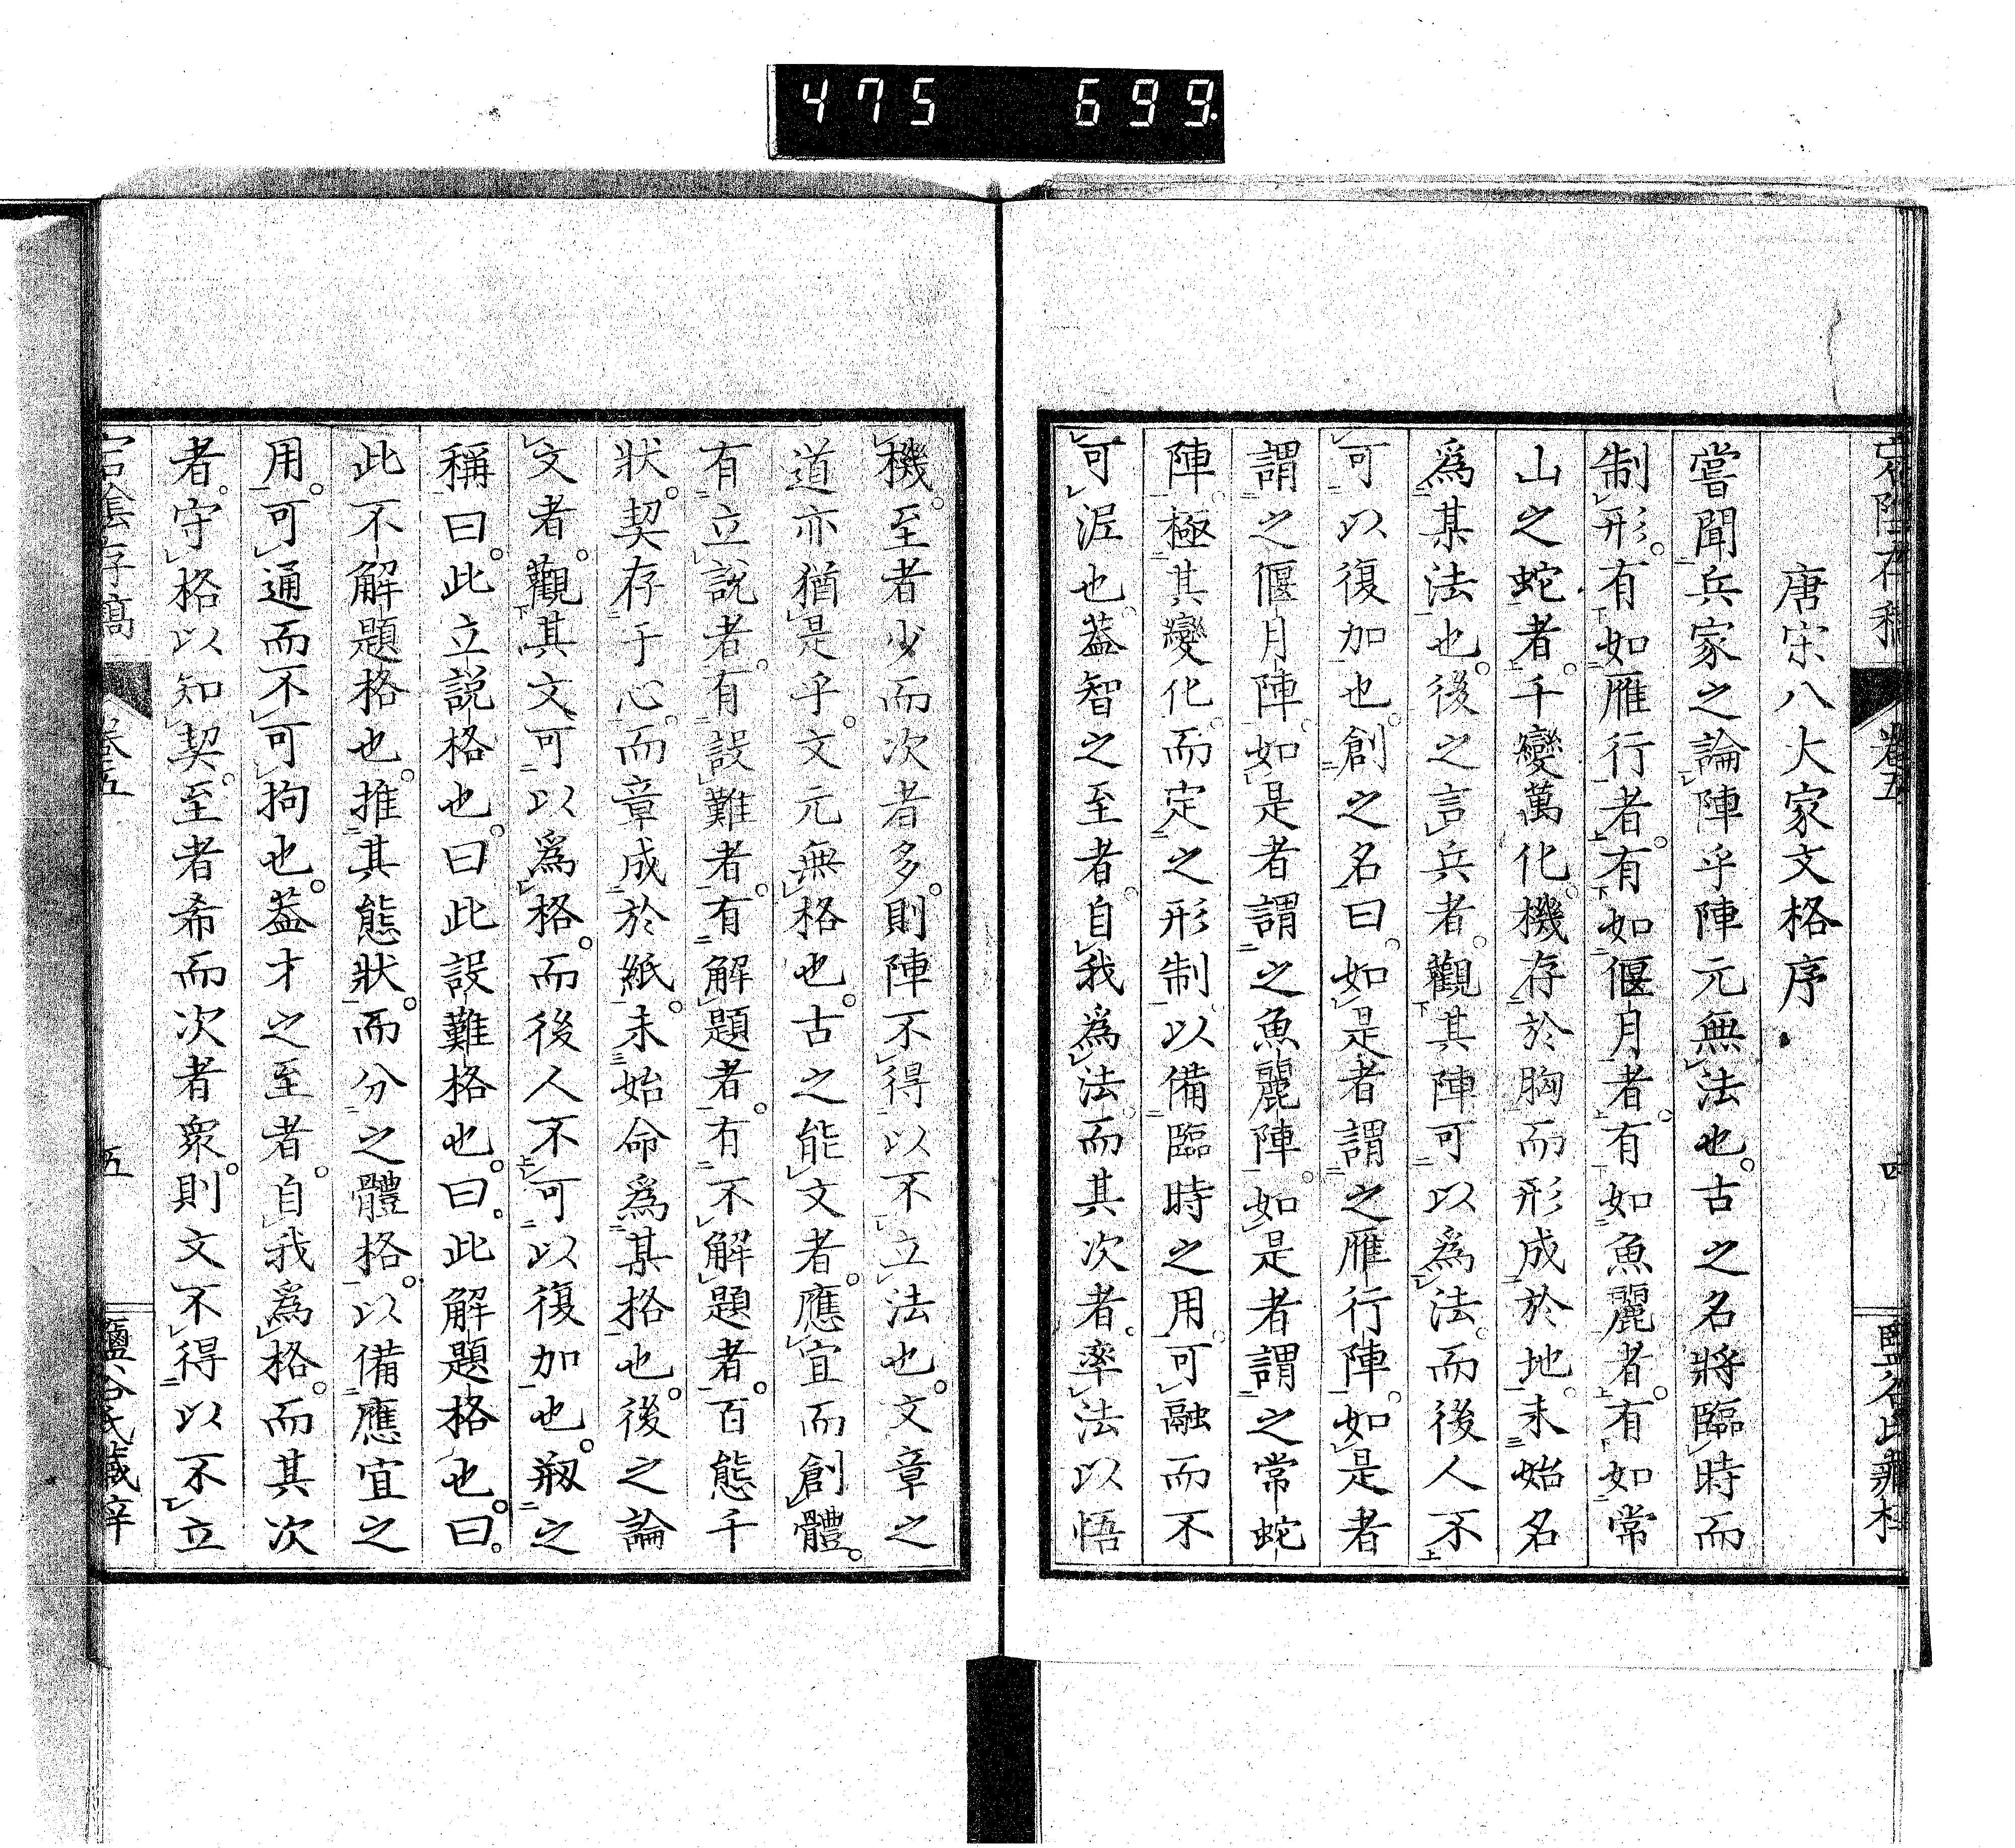 475 699
卷五 四
唐宋八大家文格序
嘗聞兵家之論陣乎陣元無法也。古之名將臨時而
制形。有如雁行者。有如偃月者。有如魚麗者。有如常
山之蛇者。千變萬化。機存於胸而形成於地。未始名
爲某法也。後之言兵者。觀其陣可以爲法。而後人不
可以復加也。創之名曰。如是者謂之雁行陣。如是者
謂之偃月陣。如是者謂之魚麗陣。如是者謂之常蛇
陣。極其變化。而定之形制。以備臨時之用。可融而不
可泥也。蓋智之至者。自我爲法。而其次者。率法以悟
機。至者少而次者多。則陣不得以不立法也。文章之
道亦猶是乎。文元無格也。古之能文者。應宜而創體。
有立說者。有設難者。有解題者。有不解題者。百態千
狀。契存于心。而章成於紙。未始命爲某格也。後之論
文者。觀其文可以爲格。而後人不可以復加也。剏之
稱曰。此立說格也。曰此設難格也。曰。此解題格也。曰。
此不解題格也。推其態狀。而分之體格。以備應宜之
用。可通而不可拘也。蓋才之至者。自我爲格。而其次
者。守格以知契。至者希而次者衆。則文不得以不立
宕陰存稿 卷五 五 鹽谷氏藏梓